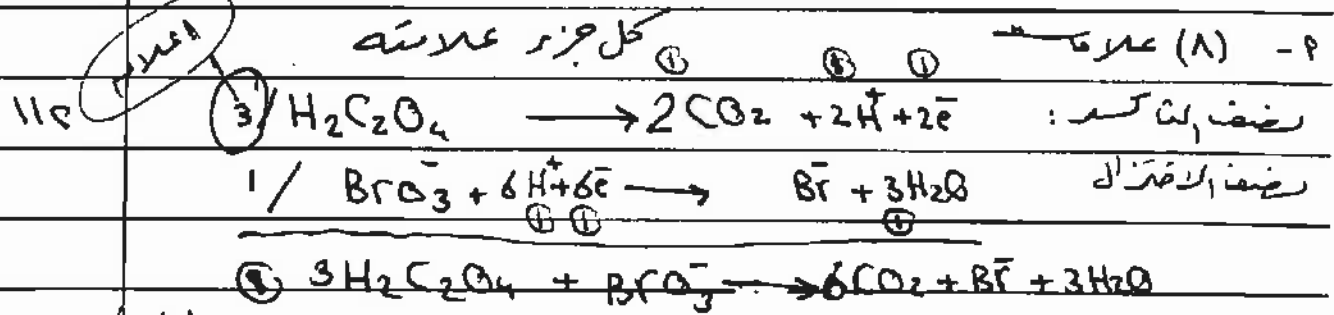 ٩- (٨) علامات كل جزء علامته ①
① ① ①
نصف التأكسد : 3/ H₂C₂O₄ ⟶ 2CO₂ + 2H⁺ + 2e⁻
نصف الاختزال 1/ BrO₃⁻ + 6H⁺ + 6e⁻ ⟶ Br⁻ + 3H₂O
① ① ①
3H₂C₂O₄ + BrO₃⁻ ⟶ 6CO₂ + Br⁻ + 3H₂O